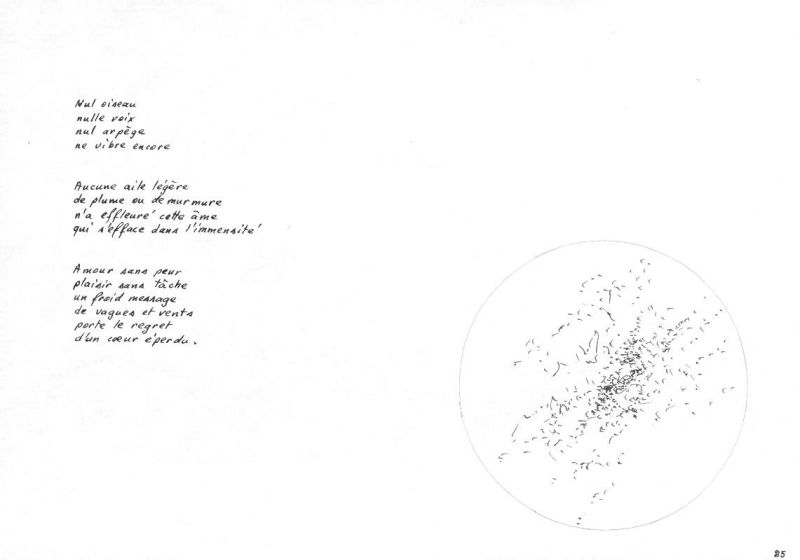 Nul oiseau
nulle voix
nul arpège
ne vibre encore
Aucune aile légère
de plume ou de murmure
n'a effleuré cette âme
qui s'efface dans l'immensité
Amour sans peur
plaisir sans tâche
un froid message
de vagues et vents
porte le regret
d'un cœur éperdu.
25